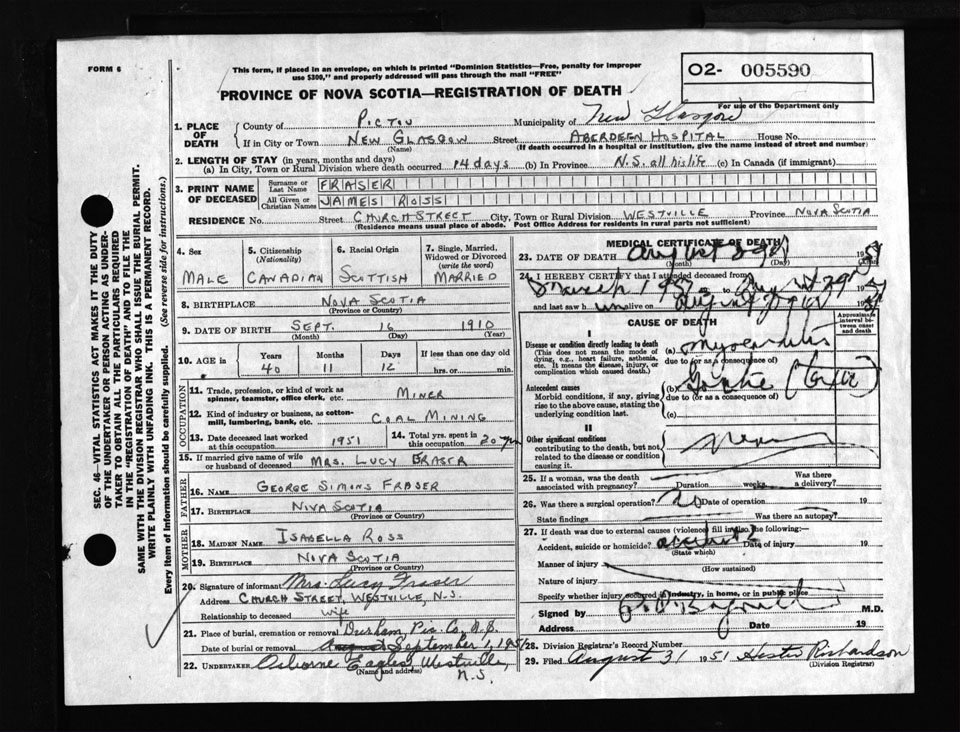 FORM 6
This form, if placed in an envelope, on which is printed "Dominion Statistics—Free, penalty for improper
use $300," and properly addressed will pass through the mail "FREE"
O2- 005590
For use of the Department only
PROVINCE OF NOVA SCOTIA—REGISTRATION OF DEATH
1. PLACE OF DEATH
County of PICTOU Municipality of New Glasgow
If in City or Town NEW GLASGOW Street ABERDEEN HOSPITAL House No.
(Name) (If death occurred in a hospital or institution, give the name instead of street and number)
2. LENGTH OF STAY (in years, months and days)
(a) In City, Town or Rural Division where death occurred 14 days (b) In Province N.S. all his life (c) In Canada (if immigrant)
3. PRINT NAME OF DECEASED
Surname or Last Name FRASER
All Given or Christian Names JAMES ROSS
RESIDENCE No. Street CHURCH STREET City, Town or Rural Division WESTVILLE Province NOVA SCOTIA
(Residence means usual place of abode. Post Office Address for residents in rural parts not sufficient)
4. Sex
MALE
5. Citizenship (Nationality)
CANADIAN
6. Racial Origin
SCOTTISH
7. Single, Married, Widowed or Divorced (write the word)
MARRIED
8. BIRTHPLACE NOVA SCOTIA
(Province or Country)
9. DATE OF BIRTH SEPT. 16 1910
(Month) (Day) (Year)
10. AGE in Years Months Days If less than one day old
40 11 12 hrs. or min.
OCCUPATION
11. Trade, profession, or kind of work as spinner, teamster, office clerk, etc. MINER
12. Kind of industry or business, as cotton-mill, lumbering, bank, etc. COAL MINING
13. Date deceased last worked at this occupation 1951
14. Total yrs. spent in this occupation 20 yrs
15. If married give name of wife or husband of deceased MRS. LUCY FRASER
FATHER
16. NAME GEORGE SIMONS FRASER
17. BIRTHPLACE NIVA SCOTIA
(Province or Country)
MOTHER
18. MAIDEN NAME ISABELLA ROSS
19. BIRTHPLACE NOVA SCOTIA
(Province or Country)
20. Signature of informant Mrs. Lucy Fraser
Address CHURCH STREET, WESTVILLE, N.S.
Relationship to deceased wife
21. Place of burial, cremation or removal Durham, Pic. Co., N.S.
Date of burial or removal August September 1, 1951
22. UNDERTAKER Osborne Eagles, Westville,
(Name and address) N.S.
MEDICAL CERTIFICATE OF DEATH
23. DATE OF DEATH August 29 19
(Month) (Day)
24. I HEREBY CERTIFY that I attended deceased from
to August 29 19
and last saw h im alive on August 19
CAUSE OF DEATH
Approximate interval between onset and death
I
Disease or condition directly leading to death
(This does not mean the mode of dying, e.g., heart failure, asthenia, etc. It means the disease, injury, or complication which caused death.)
(a) Myocarditis
due to (or as a consequence of)
Antecedent causes
Morbid conditions, if any, giving rise to the above cause, stating the underlying condition last.
(b) Goitre (toxic)
due to (or as a consequence of)
(c)
II
Other significant conditions
contributing to the death, but not related to the disease or condition causing it.
25. If a woman, was the death associated with pregnancy? Duration weeks Was there a delivery?
26. Was there a surgical operation? No Date of operation 19
State findings Was there an autopsy?
27. If death was due to external causes (violence) fill in also the following:
Accident, suicide or homicide? Date of injury 19
(State which)
Manner of injury
(How sustained)
Nature of injury
Specify whether injury occurred in industry, in home, or in public place
Signed by M.D.
Address Date 19
28. Division Registrar's Record Number
29. Filed August 31 1951 Hester Richardson
(Division Registrar)
SEC. 46—VITAL STATISTICS ACT MAKES IT THE DUTY
OF THE UNDERTAKER OR PERSON ACTING AS UNDER-
TAKER TO OBTAIN ALL THE PARTICULARS REQUIRED
IN THE "REGISTRATION OF DEATH" AND TO FILE THE
SAME WITH THE DIVISION REGISTRAR WHO SHALL ISSUE THE BURIAL PERMIT.
WRITE PLAINLY WITH UNFADING INK. THIS IS A PERMANENT RECORD.
Every item of information should be carefully supplied. (See reverse side for instructions.)